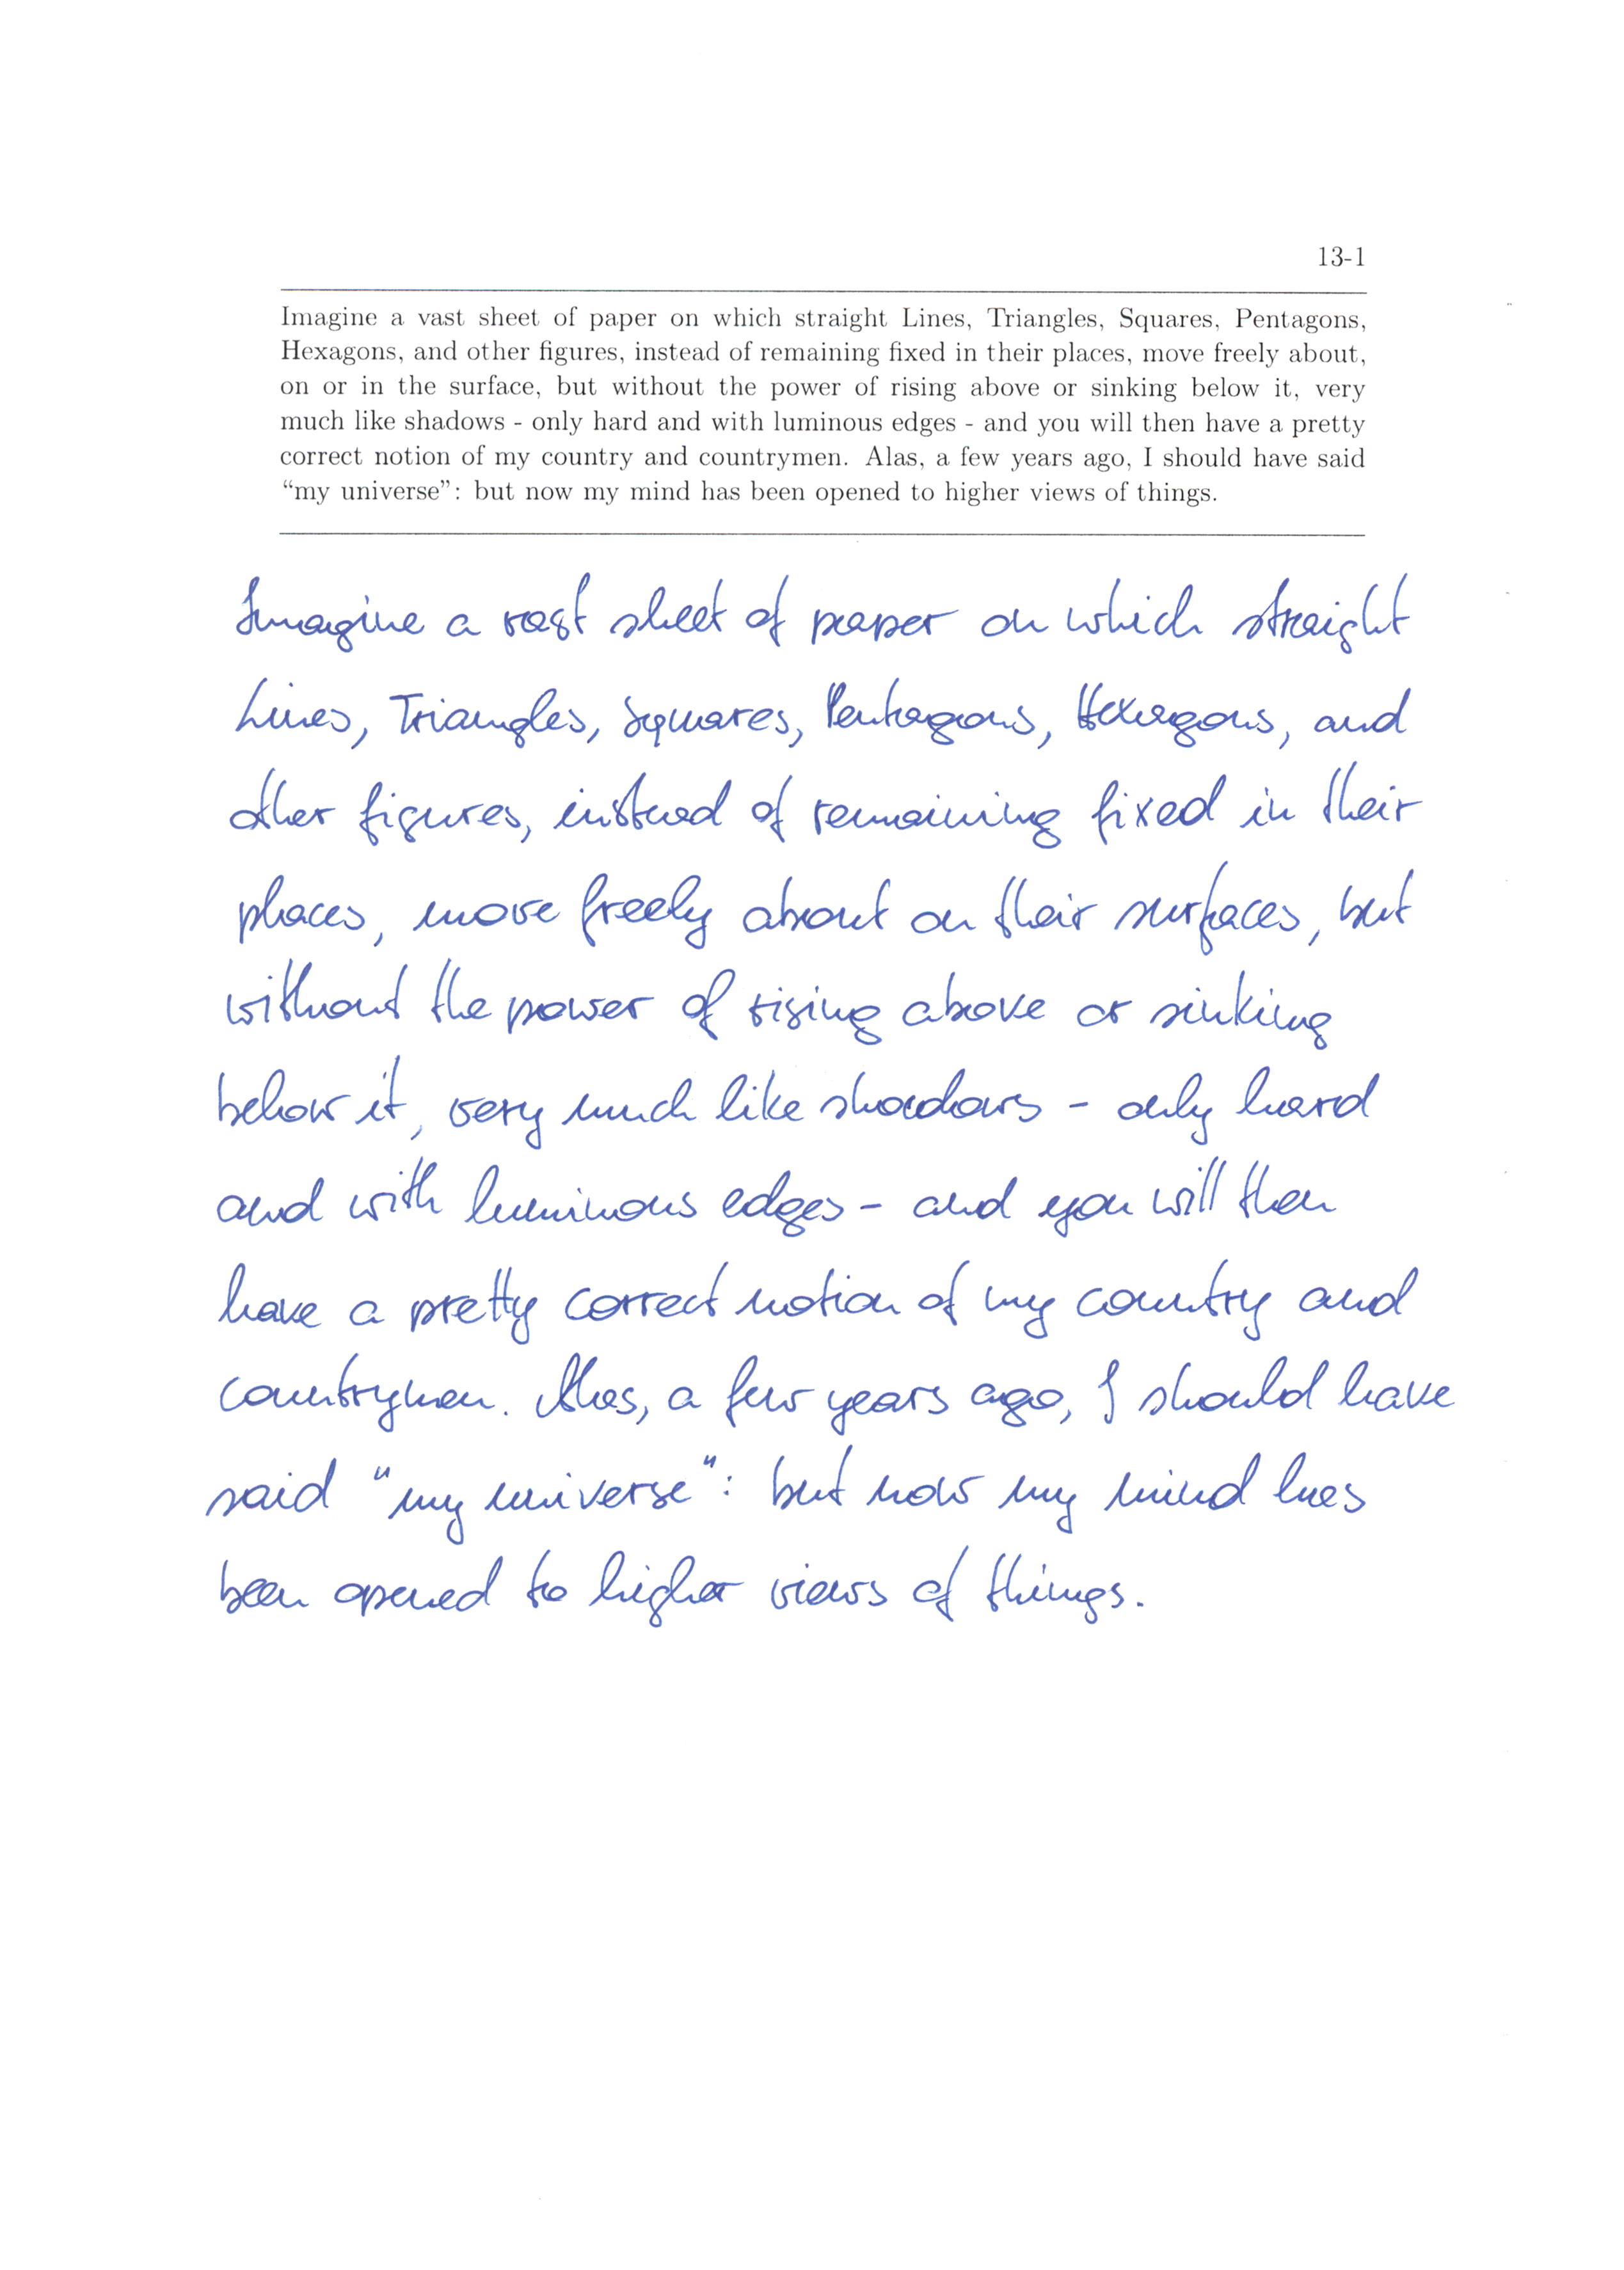 13-1
Imagine a vast sheet of paper on which straight Lines, Triangles, Squares, Pentagons,
Hexagons, and other figures, instead of remaining fixed in their places, move freely about,
on or in the surface, but without the power of rising above or sinking below it, very
much like shadows - only hard and with luminous edges - and you will then have a pretty
correct notion of my country and countrymen. Alas, a few years ago, I should have said
“my universe”: but now my mind has been opened to higher views of things.
Imagine a vast sheet of paper on which straight
Lines, Triangles, Squares, Pentagons, Hexagons, and
other figures, instead of remaining fixed in their
places, move freely about on their surfaces, but
without the power of rising above or sinking
below it, very much like shadows - only hard
and with luminous edges - and you will then
have a pretty correct notion of my country and
countrymen. Alas, a few years ago, I should have
said "my universe": but now my mind has
been opened to higher views of things.